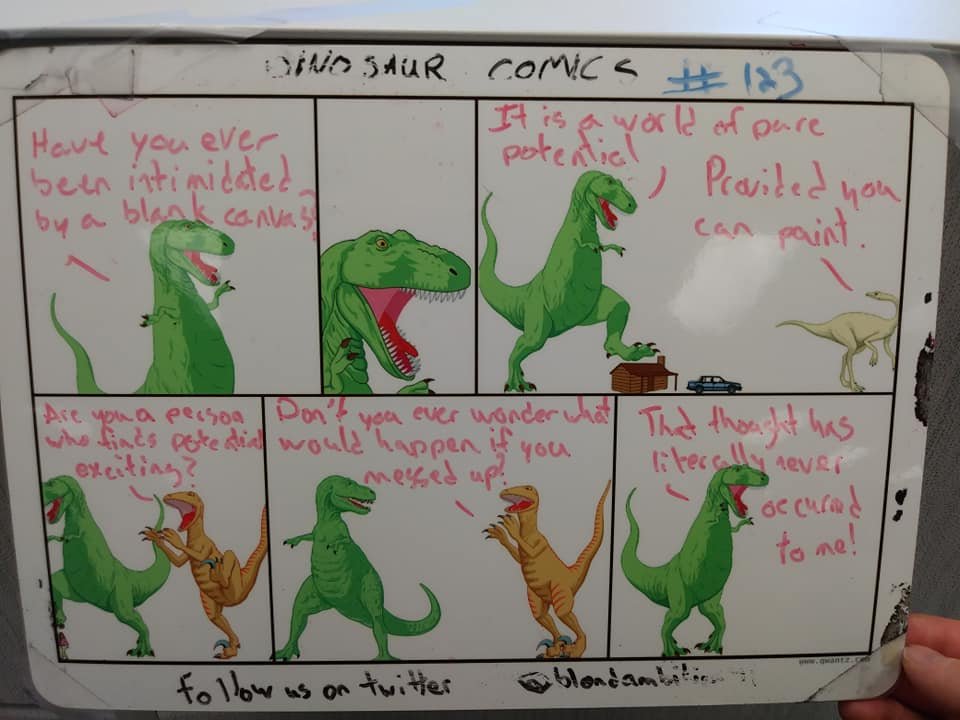 DINOSAUR COMICS # 123
Have you ever
been intimidated
by a blank canvas?
It is a world of pure
potential
Provided you
can paint.
Are you a person
who finds potential
exciting?
Don't you ever wonder what
would happen if you
messed up?
That thought has
literally never
occured
to me!
www.qwantz.com
follow us on twitter